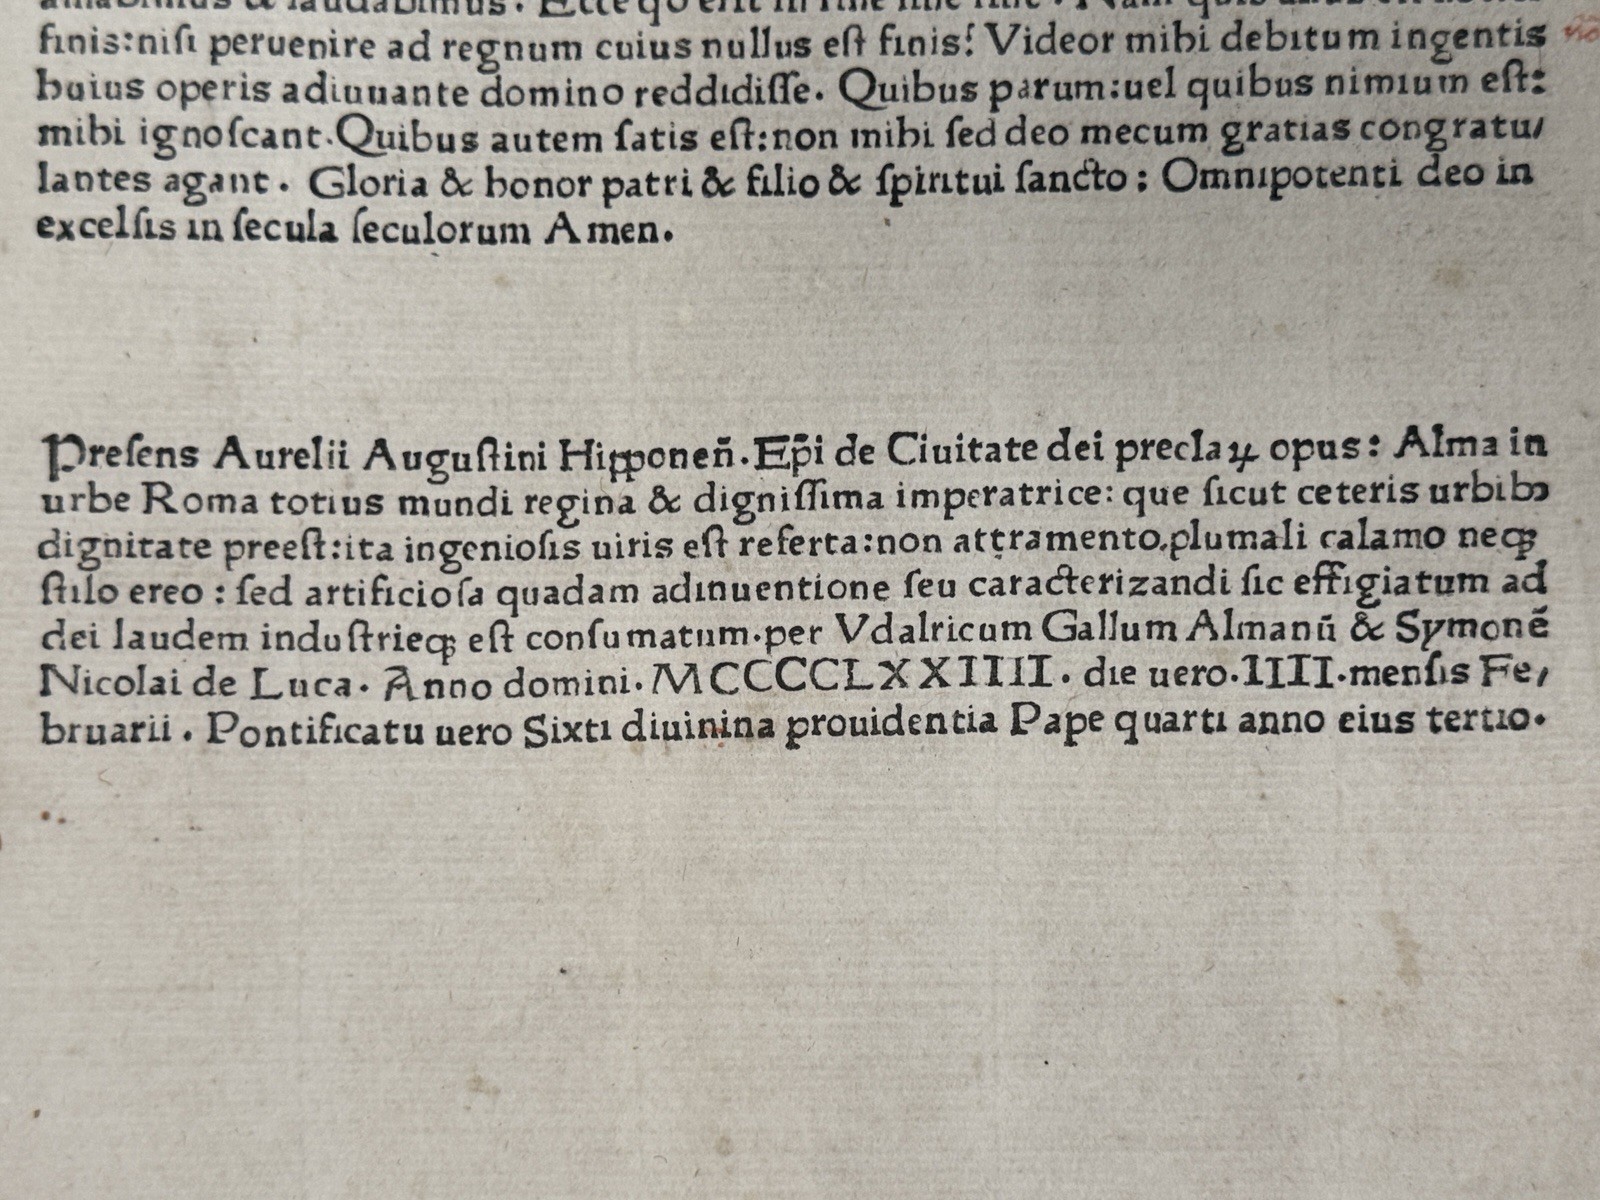 finis:niſi peruenire ad regnum cuius nullus eſt finis! Videor mihi debitum ingentis
huius operis adiuuante domino reddidiſſe. Quibus parum:uel quibus nimium eſt:
mihi ignoſcant.Quibus autem ſatis eſt:non mihi ſed deo mecum gratias congratu/
lantes agant. Gloria & honor patri & filio & ſpiritui ſancto: Omnipotenti deo in
excelſis in ſecula ſeculorum Amen.
Preſens Aurelii Auguſtini Hipponen̄.Ep̄i de Ciuitate dei preclaꝝ opus: Alma in
urbe Roma totius mundi regina & digniſſima imperatrice: que ſicut ceteris urbibꝫ
dignitate preeſt:ita ingenioſis uiris eſt referta:non attramento.plumali calamo neqꝫ
ſtilo ereo: ſed artificioſa quadam adinuentione ſeu caracterizandi ſic effigiatum ad
dei laudem induſtrieqꝫ eſt conſumatum.per Vdalricum Gallum Almanū & Symonē
Nicolai de Luca. Anno domini.MCCCCLXXIIII. die uero.IIII.menſis Fe/
bruarii. Pontificatu uero Sixti diuinina prouidentia Pape quarti anno eius tertio.